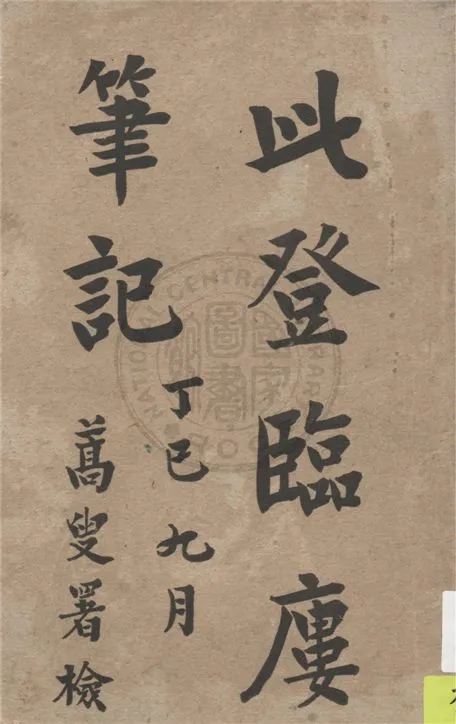 此登臨廔
筆記
丁巳九月
蒿叟署檢
NATIONAL CENTRAL LIBRARY